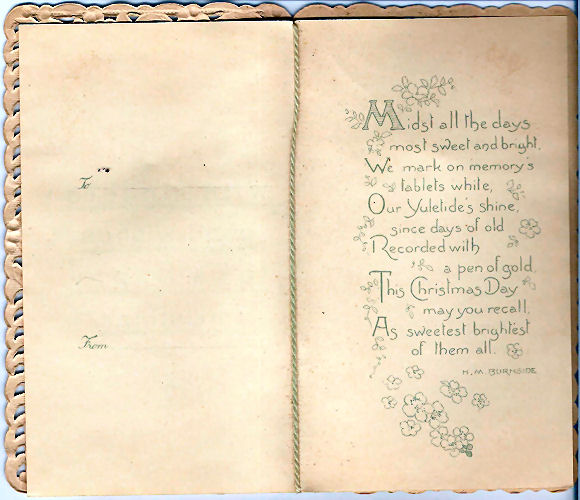 To
From
Midst all the days
most sweet and bright,
We mark on memory's
tablets white,
Our Yuletide's shine,
since days of old
Recorded with
a pen of gold.
This Christmas Day
may you recall,
As sweetest brightest
of them all.
H. M. BURNSIDE